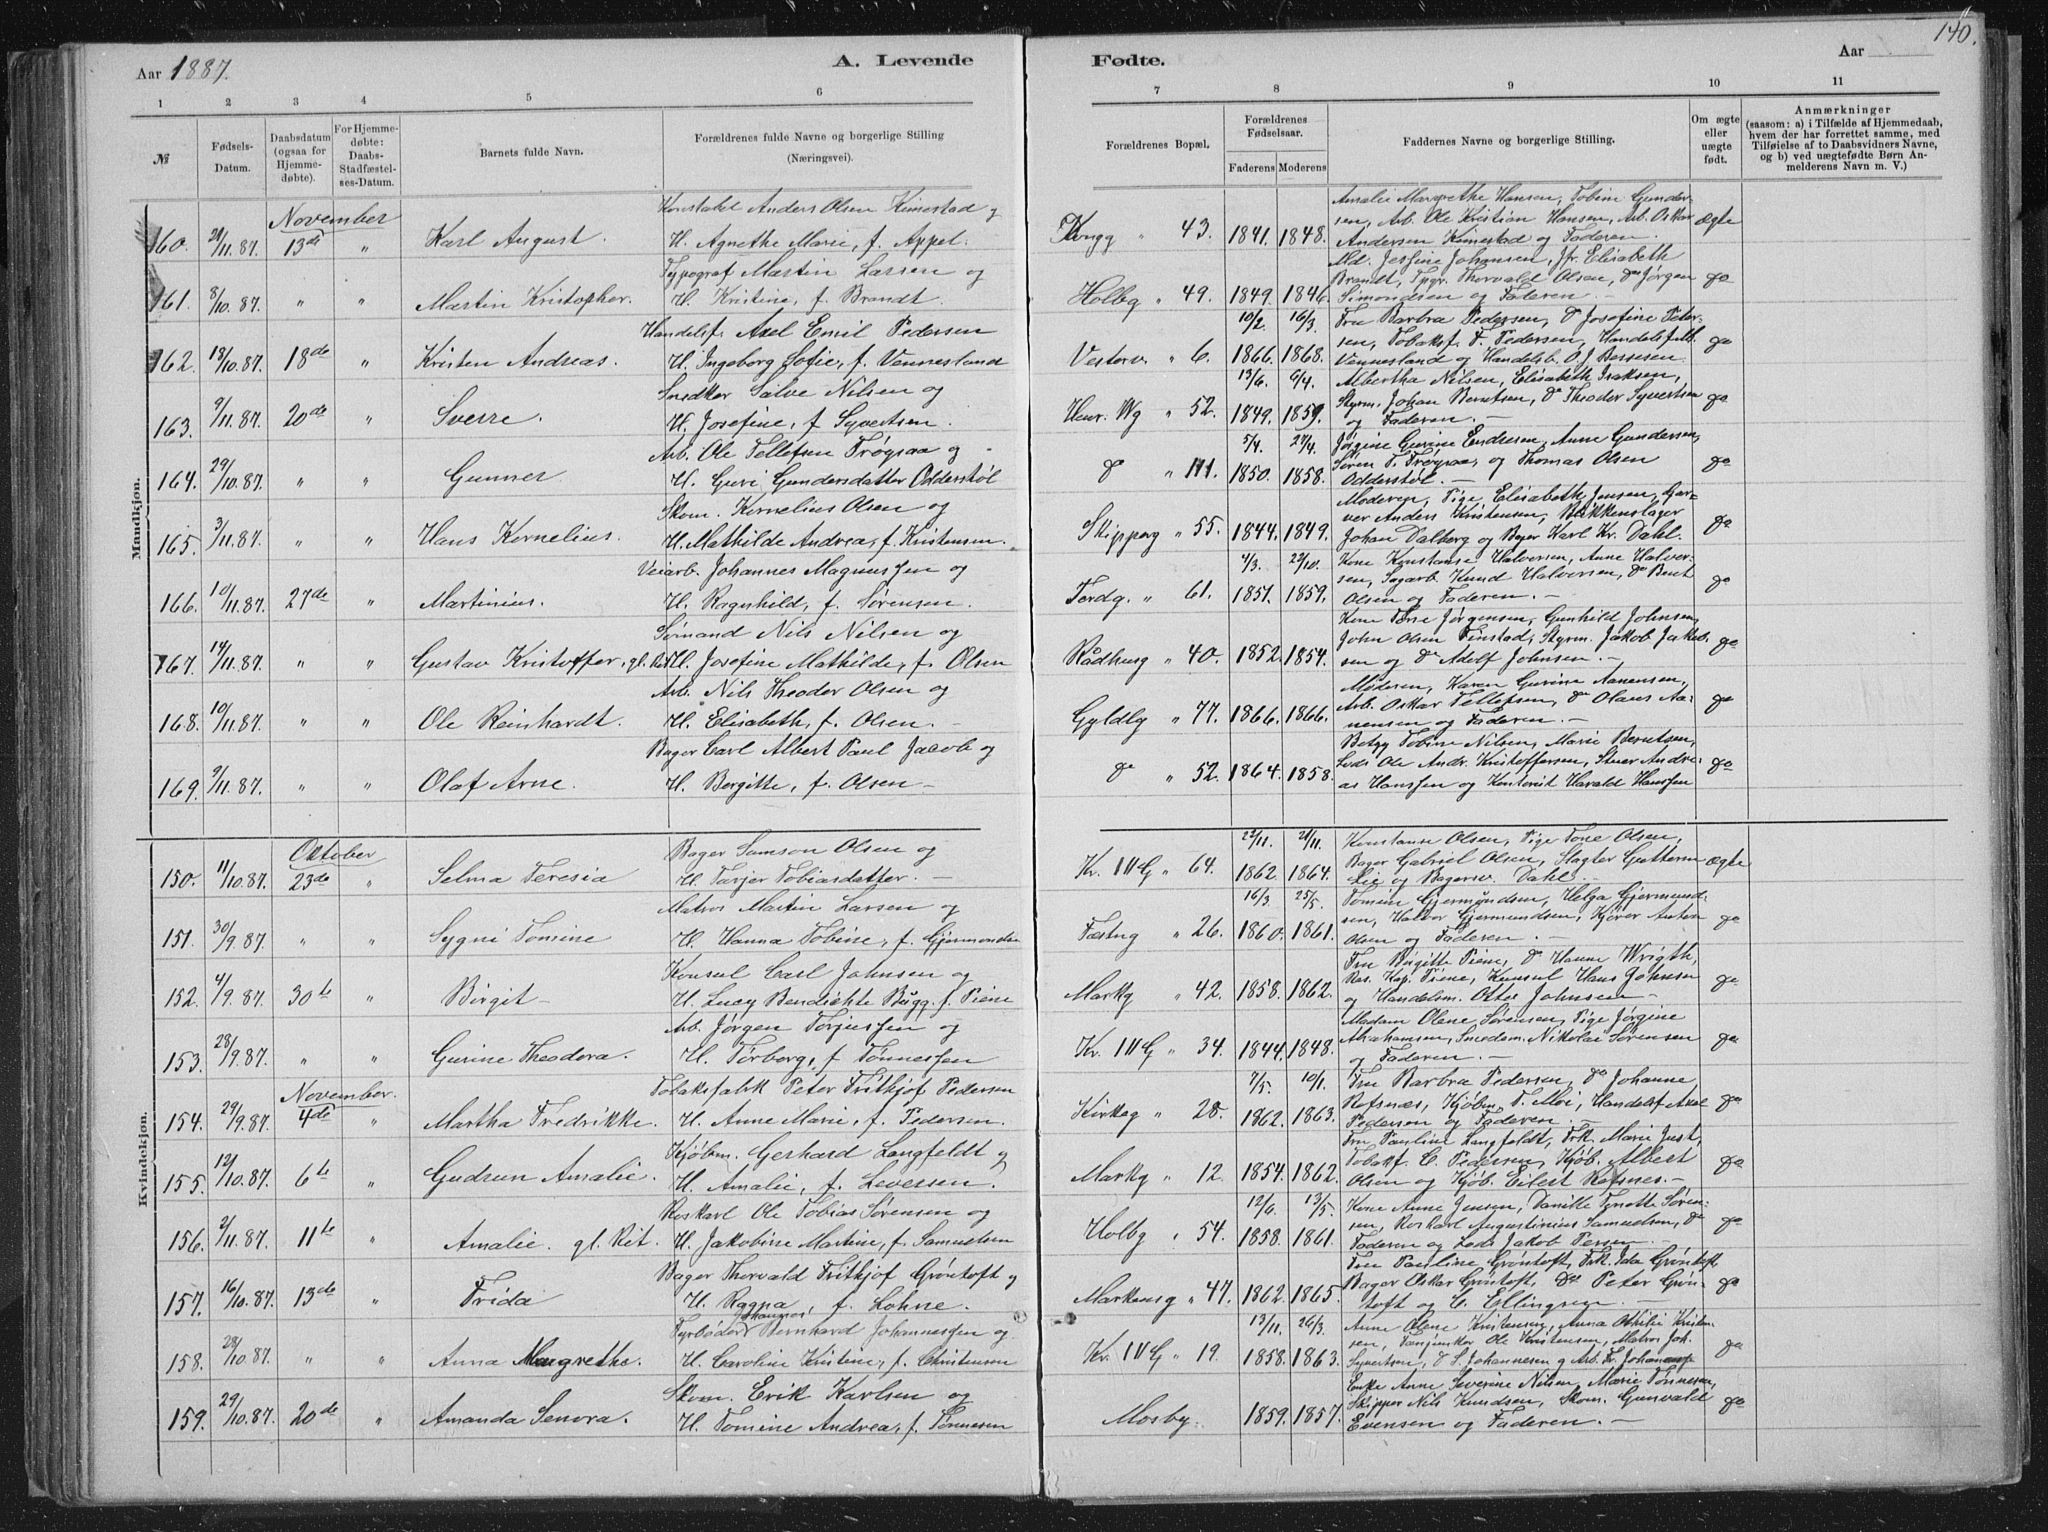 140.
Aar 1887.
A. Levende
Fødte.
Aar
1 2 3 4 5 6 7 8 9 10 11
№
Fødsels-Datum.
Daabsdatum (ogsaa for Hjemme-døbte).
For Hjemme-døbte: Daabs-Stadfæstel-ses-Datum.
Barnets fulde Navn.
Forældrenes fulde Navne og borgerlige Stilling (Næringsvei).
Forældrenes Bopæl.
Forældrenes Fødselsaar.
Faderens Moderens
Faddernes Navne og borgerlige Stilling.
Om ægte eller uægte født.
Anmærkninger
(saasom: a) i Tilfælde af Hjemmedaab,
hvem der har forrettet samme, med
Tilføielse af to Daabsvidners Navne,
og b) ved uægtefødte Børn An-
melderens Navn m. V.)
Mandkjøn.
November
Konstabel Anders Olsen Kimestad g
Amalie Margrethe Hansen, Tobine Gunder-
160. 11.87. 13de " Karl August. H. Agnethe Marie, f. Appel. Kongg " 43. 1841. 1848. sen, Arb. Ole Kristian Hansen, Arb. Oskar ægte
Andersen Kimestad og Faderen.
Typograf Martin Larsen og
Md. Jesfine Johansen, Jfr. Elisabeth
161. 8/10.87. " " Martin Kristopher. H. Kristine, f. Brandt. Holbg " 49. 1849. 1846. Brandt, Typgr. Thorvald Olsen, do Jørgen do
Simondsen og Faderen. —
Handelsf. Axel Emil Pedersen
10/2. 16/3. Fru Barbra Pedersen, do Josefine Peter-
162. 18/10.87. 18de " Kristen Andreas. H. Ingeborg Sofie, f. Vennesland Vesterv " 6. 1866. 1868. sen, Tobaksf. F. Pedersen, Handelsfulb. do
Vennesland og Handelsb. O. J. Bessesen.
Snedker Salve Nilsen og
13/6. 6/4. Albertha Nilsen, Elisabeth Isaksen,
163. 9/11.87. 20de " Sverre. H. Josefine, f Syvertsen. Henr. Wg " 52. 1849. 1859. Styrm. Johan Berntsen, do Theodor Syvertsen do
og Faderen. —
Arb. Ole Tellefsen Trøgsaa og
5/4. 27/4. Jørgine Gurine Endresen, Anne Gundersen,
164. 29/10.87. " " Gunner H. Guri Gundersdatter Odderstøl do " 111. 1850. 1858. Søren T. Trøgsaa, og Thomas Olsen do
Odderstøl. —
Skom. Kornelius Olsen og
Moderen, Pige Elisabeth Jensen, Gar-
165. 3/11.87. " " Hans Kornelius. H. Mathilde Andrea, f. Kristensen. Skipperg " 55. 1844. 1849. ver Anders Kristensen, Blikkenslager do
Johan Dalberg og Bager Karl Kr. Dahl.
Veiarb. Johannes Magnussen og
4/3. 22/10. Kone Konstanse Halvorsen, Anne Halver-
166. 10/11.87. 27de " Martinius. H. Ragnhild, f. Sørensen. Tordg. " 61. 1851. 1859. sen, Sagarb Knud Halvorsen, do Bent do
Olsen og Faderen. —
Sømand Nils Nilsen og
Kone Tone Jørgensen, Gunhild Johnsen,
167. 14/11.87. " " Gustav Kristoffer, gl. Rit. H. Josefine Mathilde, f. Olsen Rådhusg " 40. 1852. 1854. John Olsen Finstad, Styrm. Jakob Jakob- do
sen og do Adolf Johnsen. —
Arb. Nils Theodor Olsen og
Moderen, Karen Gurine Aanensen,
168. 10/11.87. " " Ole Reinhardt. H. Elisabeth, f. Olsen. — Gyldlg " 77. 1866. 1866. Arb. Oskar Tellefsen, do Olaus Aa- do
nensen og Faderen. —
Bager Carl Albert Paul Jacob og
Betzy Tobine Nilsen, Marie Berntsen,
169. 9/11.87. " " Olaf Arne. H. Bergitte, f. Olsen — do " 52. 1864. 1858. Lods Ole Andr. Kristoffersen, Stuer Andre- do
as Hanssen og Kontorist Harald Hanssen
Kvindekjøn.
Oktober
Bager Samson Olsen og
22/11. 21/11. Konstanse Olsen, Pige Tone Olsen,
150. 11/10.87. 23de " Selma Teresia H. Tarjer Tobiasdatter. — Kr. IV G " 64. 1862. 1864. Bager Gabriel Olsen, Slagter Guttorm ægte
Lie og Bagersv. Dahl. —
Matros Martin Larsen og
16/3. 25/5. Tomine Gjermundsen, Helga Gjermund-
151. 30/9.87. " " Sygni Tomine H. Hanna Tobine, f. Gjermundsen Fæstng " 26. 1860. 1861. sen, Halvor Gjermundsen, Kjører Anton do
Olsen og Faderen. —
Konsul Carl Johnsen og
Fru Birgitte Piene, do Hanne Wrigth,
152. 4/9.87. 30te " Birgit — H. Lucy Bendichte Bugg, f. Piene Markg " 42. 1858. 1862. Res. Kap. Piene, Konsul Hans Johnsen do
og Handelsm. Otto Johnsen —
Arb. Jørgen Torjussen og
Madam Olene Sørensen, Pige Jørgine
153. 28/9.87. " " Gurine Theodora. H. Torborg, f. Tønnessen Kr. IV G " 34. 1844. 1848. Abrahamsen, Smedsm. Nikolai Sørensen do
og Faderen. —
November.
Tobaksfabk Peter Fritkjof Pedersen
7/5. 10/1. Fru Barbra Pedersen, do Johanne
154. 29/9.87. 4de " Martha Fredrikke. H. Anne Marie, f. Pedersen. Kirkeg " 28. 1862. 1863. Refsnæs, Kjøbm. F. Moi, Handelsf. Axel do
Pedersen og Faderen. —
Kjøbm. Gerhard Langfeldt g
Fru Pauline Langfeldt, Frk. Marie Just,
155. 12/10.87. 6te " Gudrun Amalie. H. Amalie, f. Leversen. Markg " 12. 1854. 1862. Tobakf. C. Pedersen, Kjøb. Albert do
Olsen og Kjøb. Eilert Refsnes. —
Roskarl Ole Tobias Sørensen og
12/6. 13/5. Kone Anne Jensen, Danikke Tynotte Søren-
156. 2/11.87. 11te " Amalie. gl. Rit. H. Jakobine Martine, f. Samuelsen Holbg " 54. 1858. 1861. sen, Roskarl Augustinius Samuelsen, do do
Faderen og Lods Jakob Persen. —
Bager Thorvald Fritkjof Grøntoft g
Fru Pauline Grøntoft, Frk. Ida Grøntoft,
157. 16/10.87. 13de " Frida H. Ragna Johannes, f. Lohne. Markensg " 47. 1862. 1865. Bager Oskar Grøntoft, do Peter Grøn- do
toft og C. Ellingsen. —
Fyrbøder Bernhard Johannessen og
13/11. 26/3. Anne Olene Kristensen, Anna Othilie Kristen-
158. 28/10.87. " " Anna Margrethe. H. Caroline Kristine, f. Christensen Kr. IV G " 19. 1858. 1863. sen, Ole Kristensen, Matros Joh. do
Syvertsen, do S. Johannesen g Arb. Fr. Johannesen
Skom. Erik Karlsen og
Enke Anne Severine Nilsen, Marie Tønnesen,
159. 29/10.87. 20de " Amanda Senora. H. Tomine Andrea, f. Tønnesen Mosby. 1859. 1857. Skipper Nils Knudsen, Skom. Gunvald do
Evensen og Faderen. —